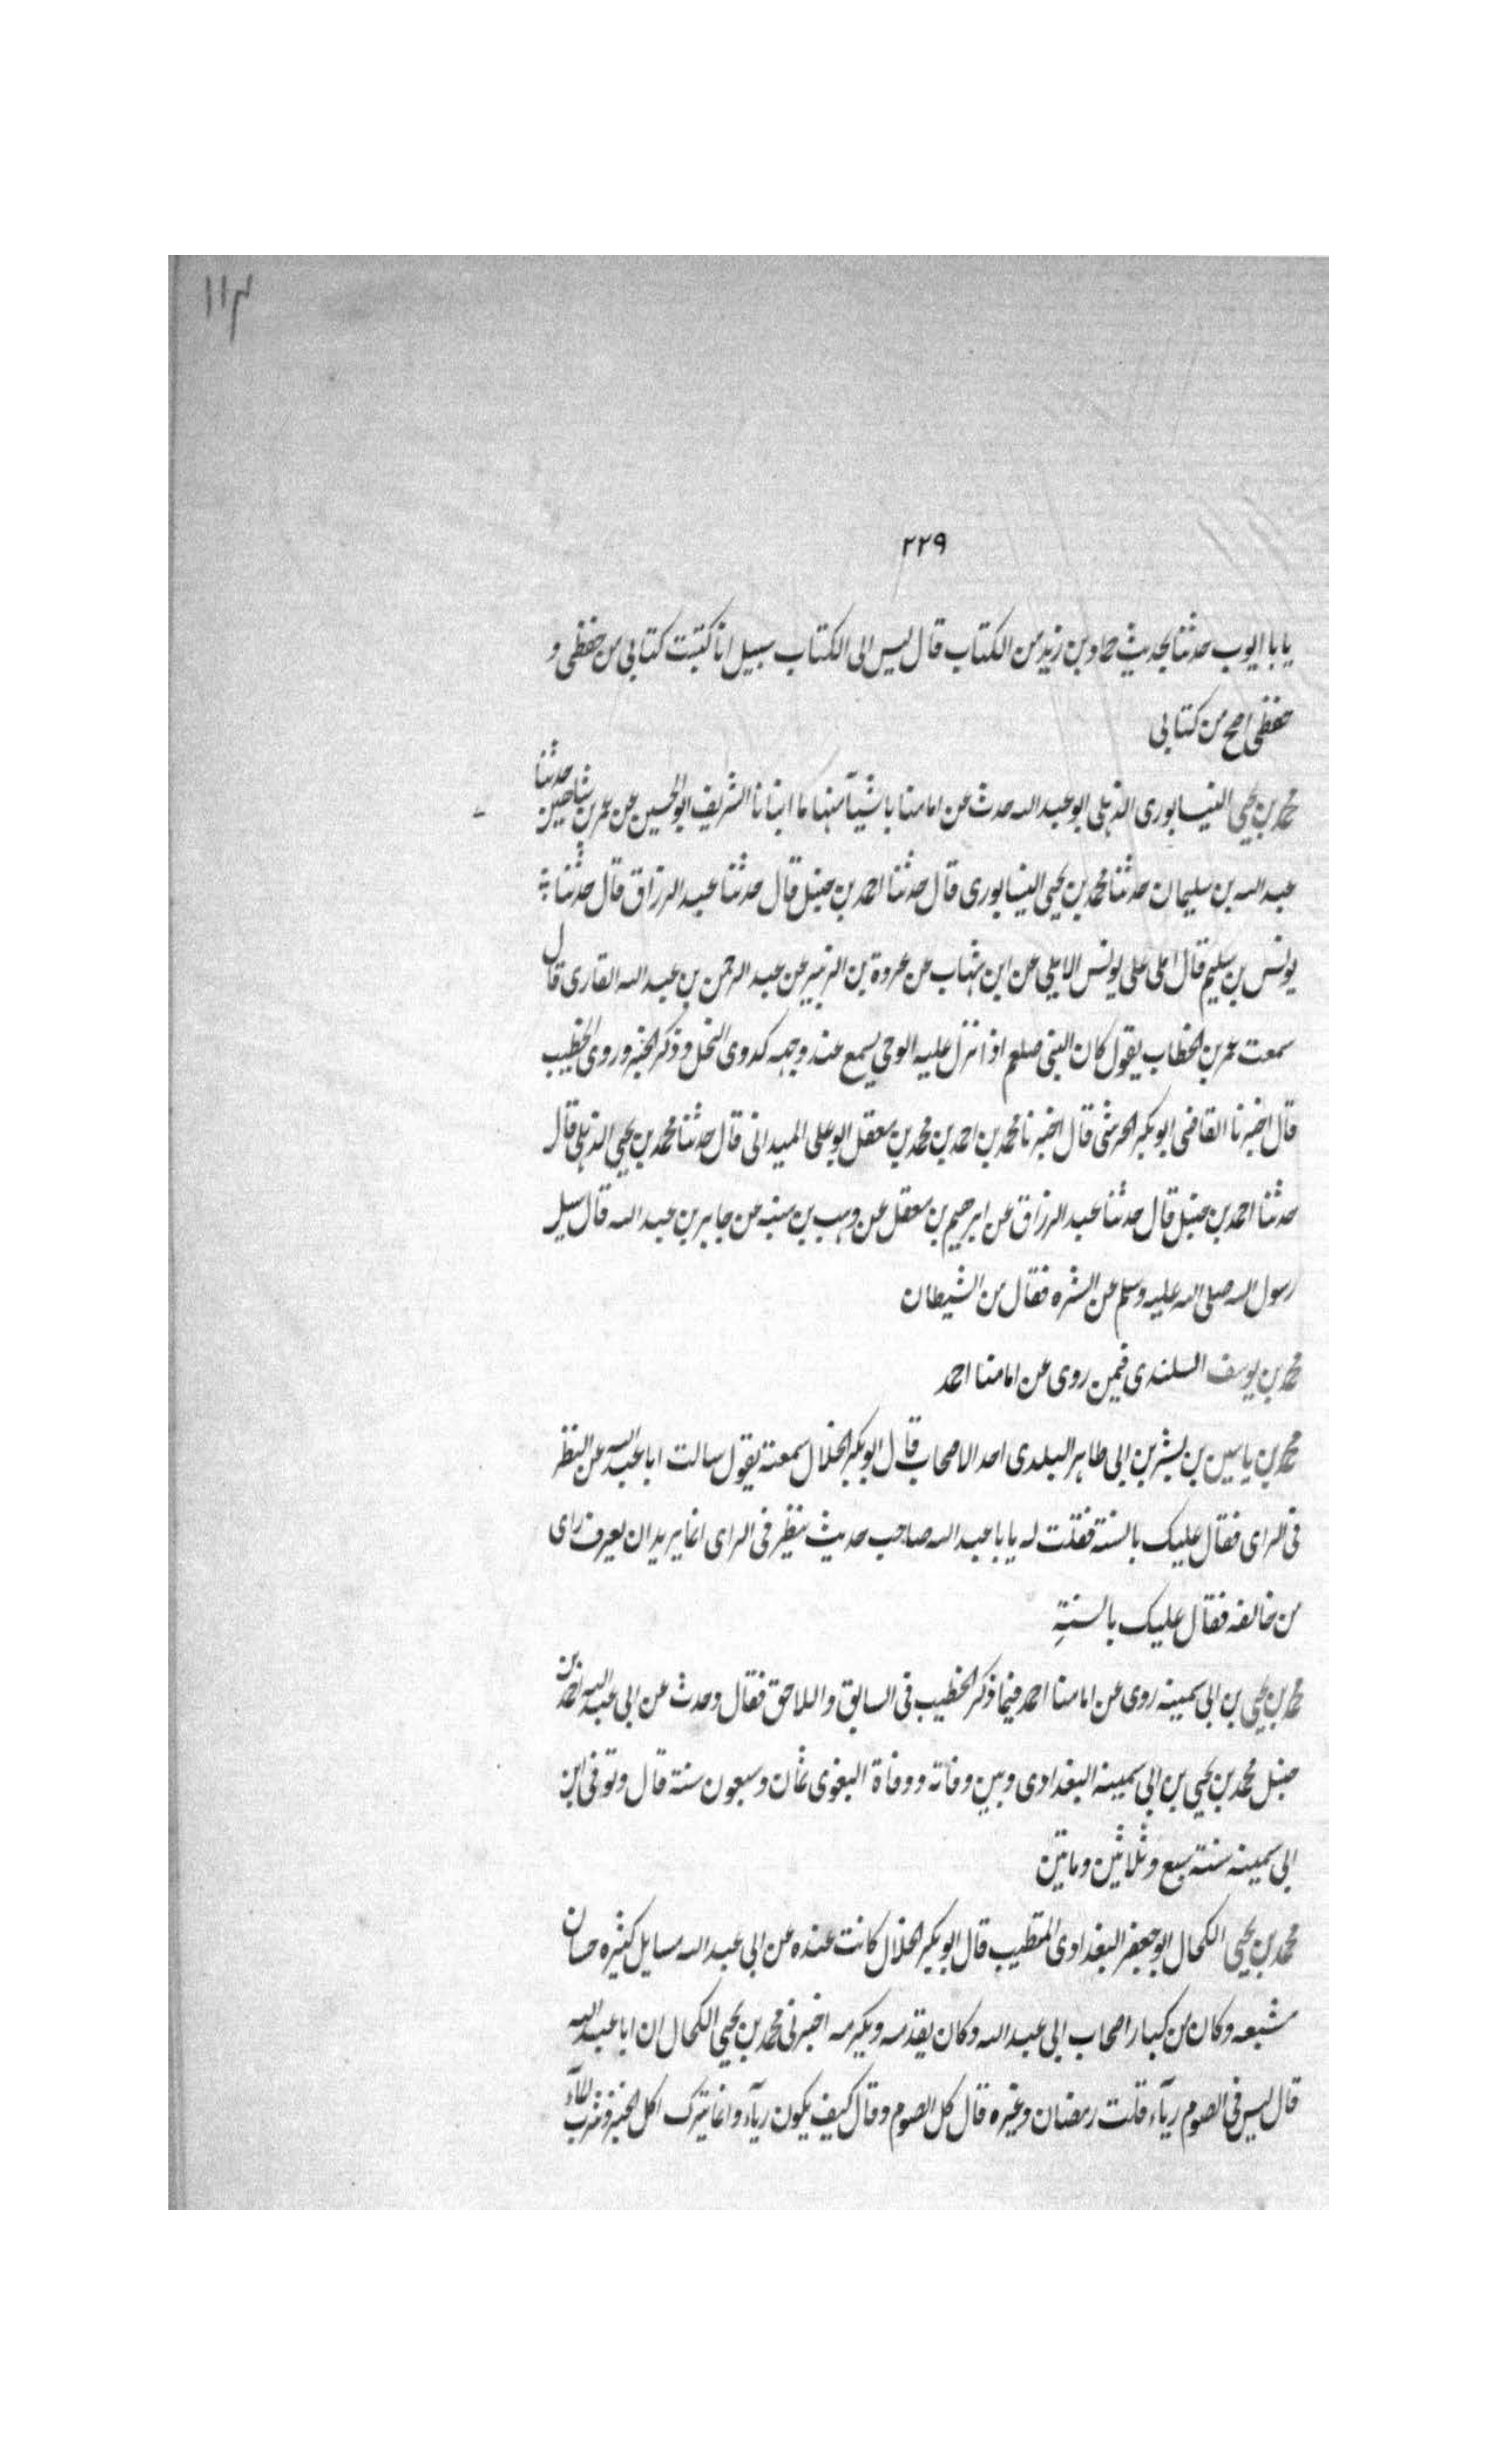 ۱۱۴
۲۲۹
يا با ايوب حدثنا بحديث حماد بن زيد من الكتاب قال ليس الى الكتاب سبيل انا كتبت كتابي من حفظي و
حفظي اصح من كتابي
محمد بن يحيى النيسابورى الذهلى ابو عبد الله حدث عن امامنا باشيآ منها ما انبانا الشريف ابو الحسين عن عمر بن شاهين حدثنا
عبد الله بن سليمان حدثنا محمد بن يحيى النيسابورى قال حدثنا احمد بن حنبل قال حدثنا عبد الرزاق قال حدثنا
يونس بن سليم قال املى على يونس الايلى عن ابن شهاب عن عروة بن الزبير عن عبد الرحمن بن عبد الله القارى قال
سمعت عمر بن الخطاب يقول كان النبى صلعم اذا نزل عليه الوحى يسمع عند وجهه كدوى النحل وذكر الخبر وروى الخطيب
قال اخبرنا القاضى ابو بكر الحرشى قال اخبرنا محمد بن احمد بن محمد بن معقل ابو على الميدانى قال حدثنا محمد بن يحيى الذهلى قال
حدثنا احمد بن حنبل قال حدثنا عبد الرزاق عن ابرهيم بن معقل عن وهب بن منبه عن جابر بن عبد الله قال سيل
رسول الله صلى الله عليه وسلم عن النشره فقال من الشيطان
محمد بن يوسف السلندى فيمن روى عن امامنا احمد
محمد بن ياسين بن بشر بن ابى طاهر البلدى احد الاصحاب قال ابو بكر الخلال سمعته يقول سالت ابا عبد الله عن النظر
فى الراى فقال عليك بالسنة فقلت له يا با عبد الله صاحب حديث ينظر فى الراى انما يريد ان يعرف راى
من خالفه فقال عليك بالسنةِ
محمد بن يحيى بن ابى سمينه روى عن امامنا احمد فيما ذكر الخطيب فى السابق واللاحق فقال وحدث عن ابى عبد الله احمد بن
حنبل محمد بن يحيى بن ابى سمينه البغدادى وبين وفاته ووفاة البغوى ثمان وسبعون سنة قال وتوفى ابن
ابى سمينه سنة سبع وثلاثين وماتين
محمد بن يحيى الكحال ابو جعفر البغدادى المتطبب قال ابو بكر الخلال كانت عنده عن ابى عبد الله مسايل كثيره حسان
مشبعه وكان من كبار اصحاب ابى عبد الله وكان يقدمه ويكرمه اخبرنى محمد بن يحيى الكحال ان ابا عبد الله
قال ليس فى الصوم ريآء قلت رمضان وغيره قال كل الصوم وقال كيف يكون ريآء وانما يترك اكل الخبز وشرب المآء